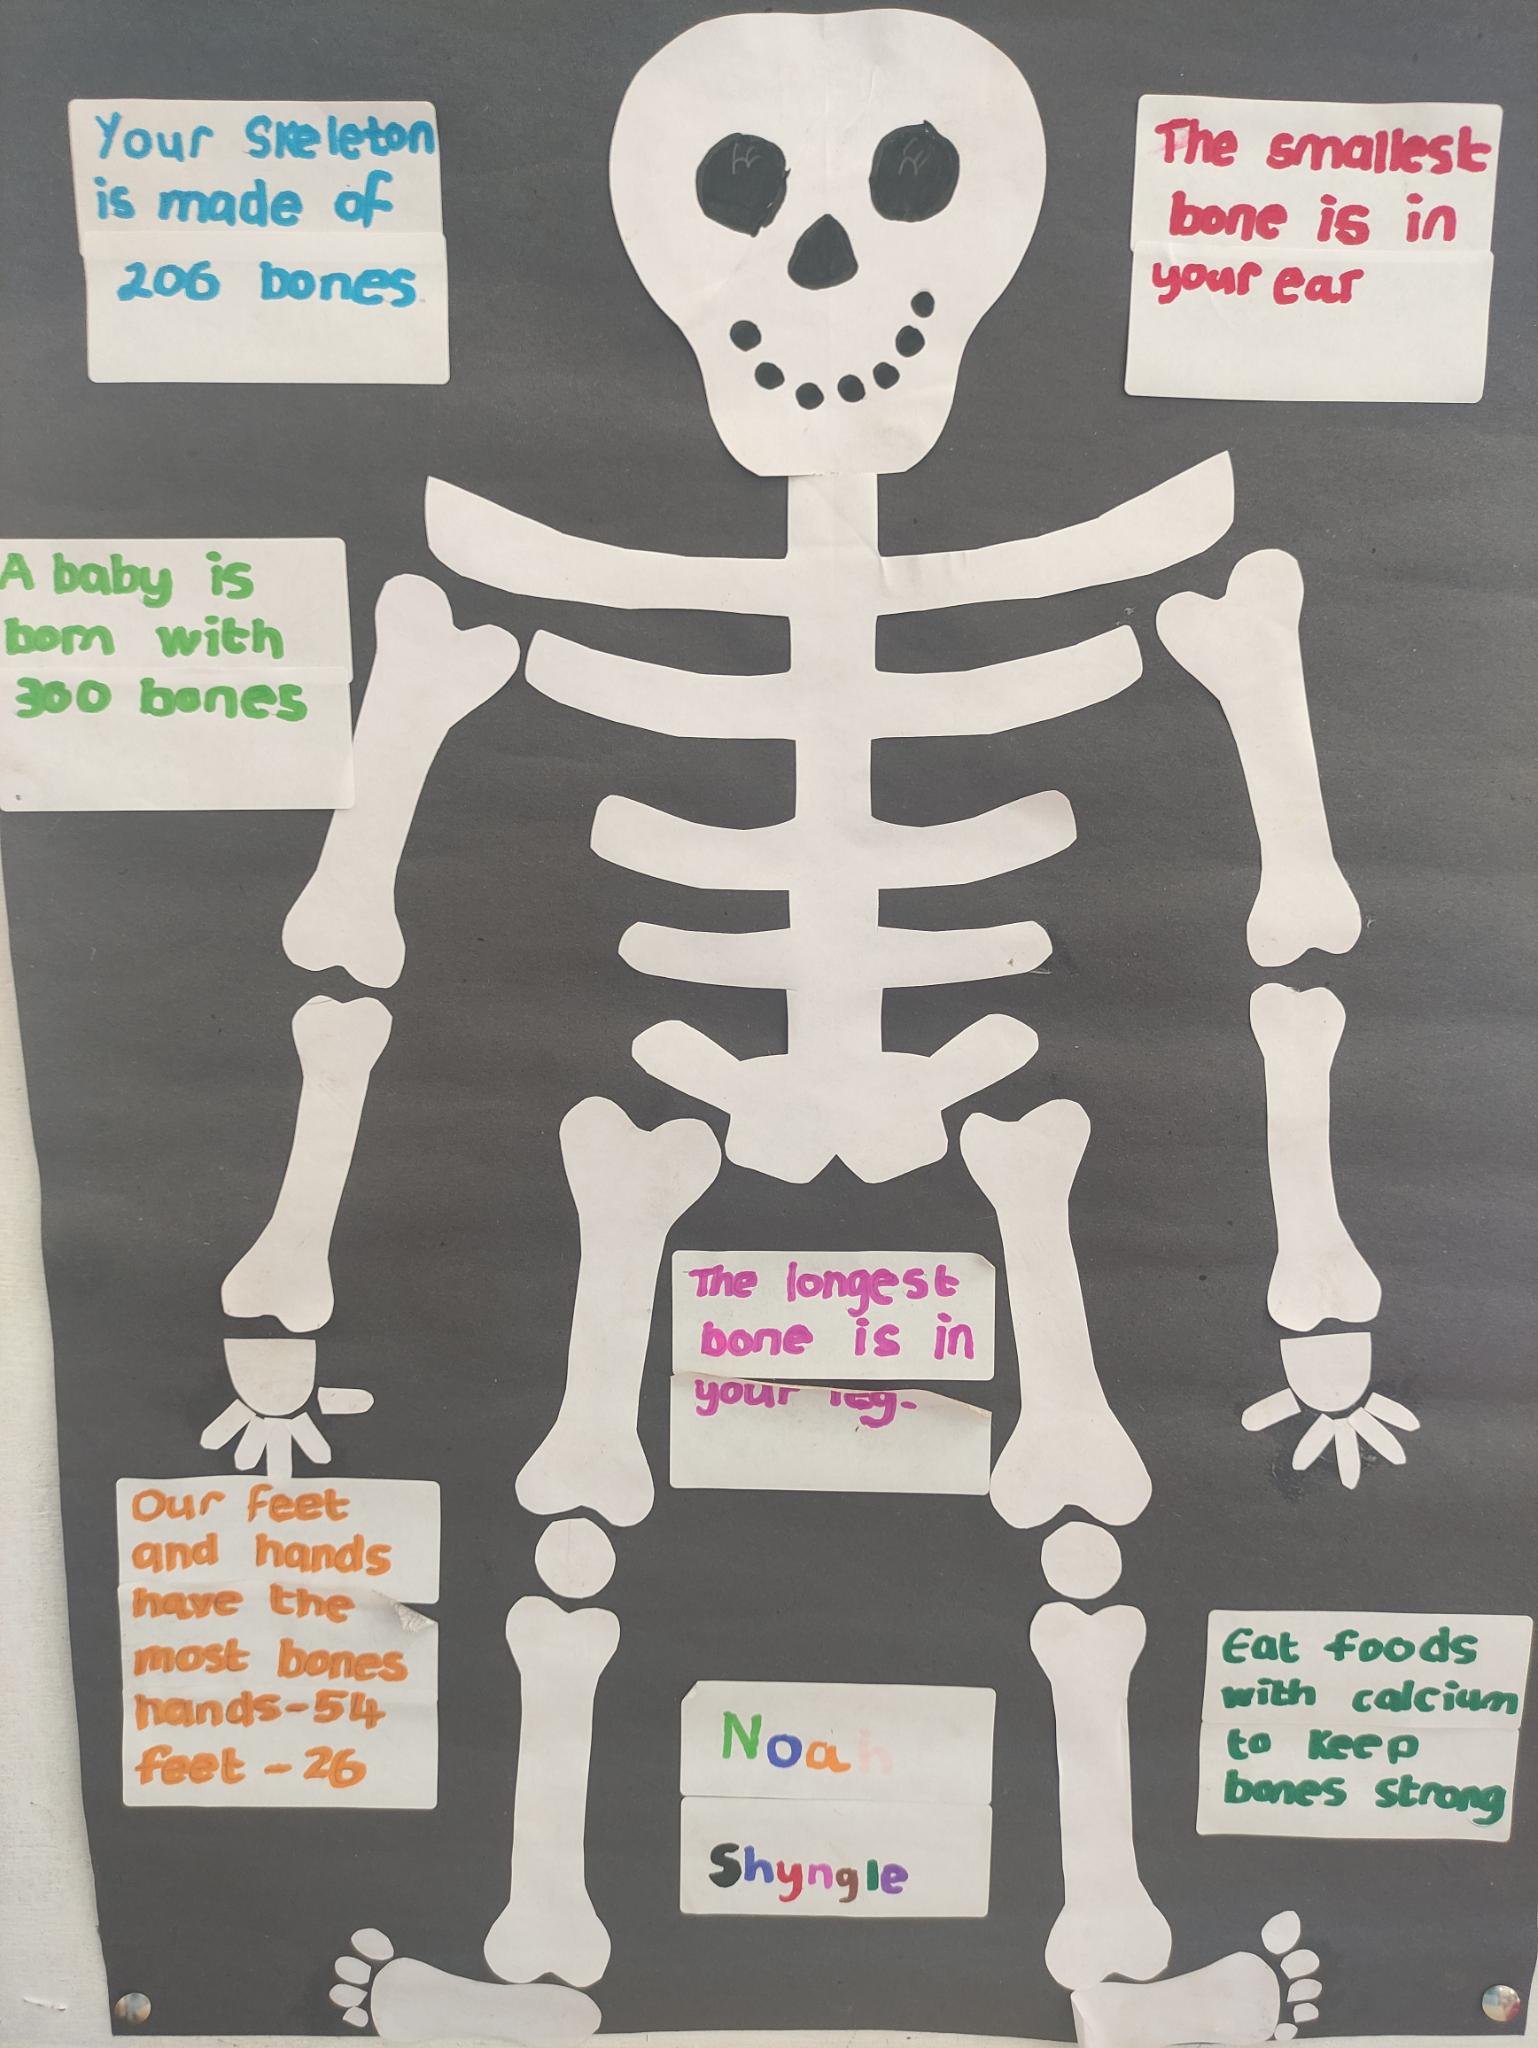 Your Skeleton
is made of
206 bones
The smallest
bone is in
your ear
A baby is
born with
300 bones
The longest
bone is in
your leg.
Our feet
and hands
have the
most bones
hands-54
feet-26
Noah
Shyngle
Eat foods
with calcium
to keep
bones strong